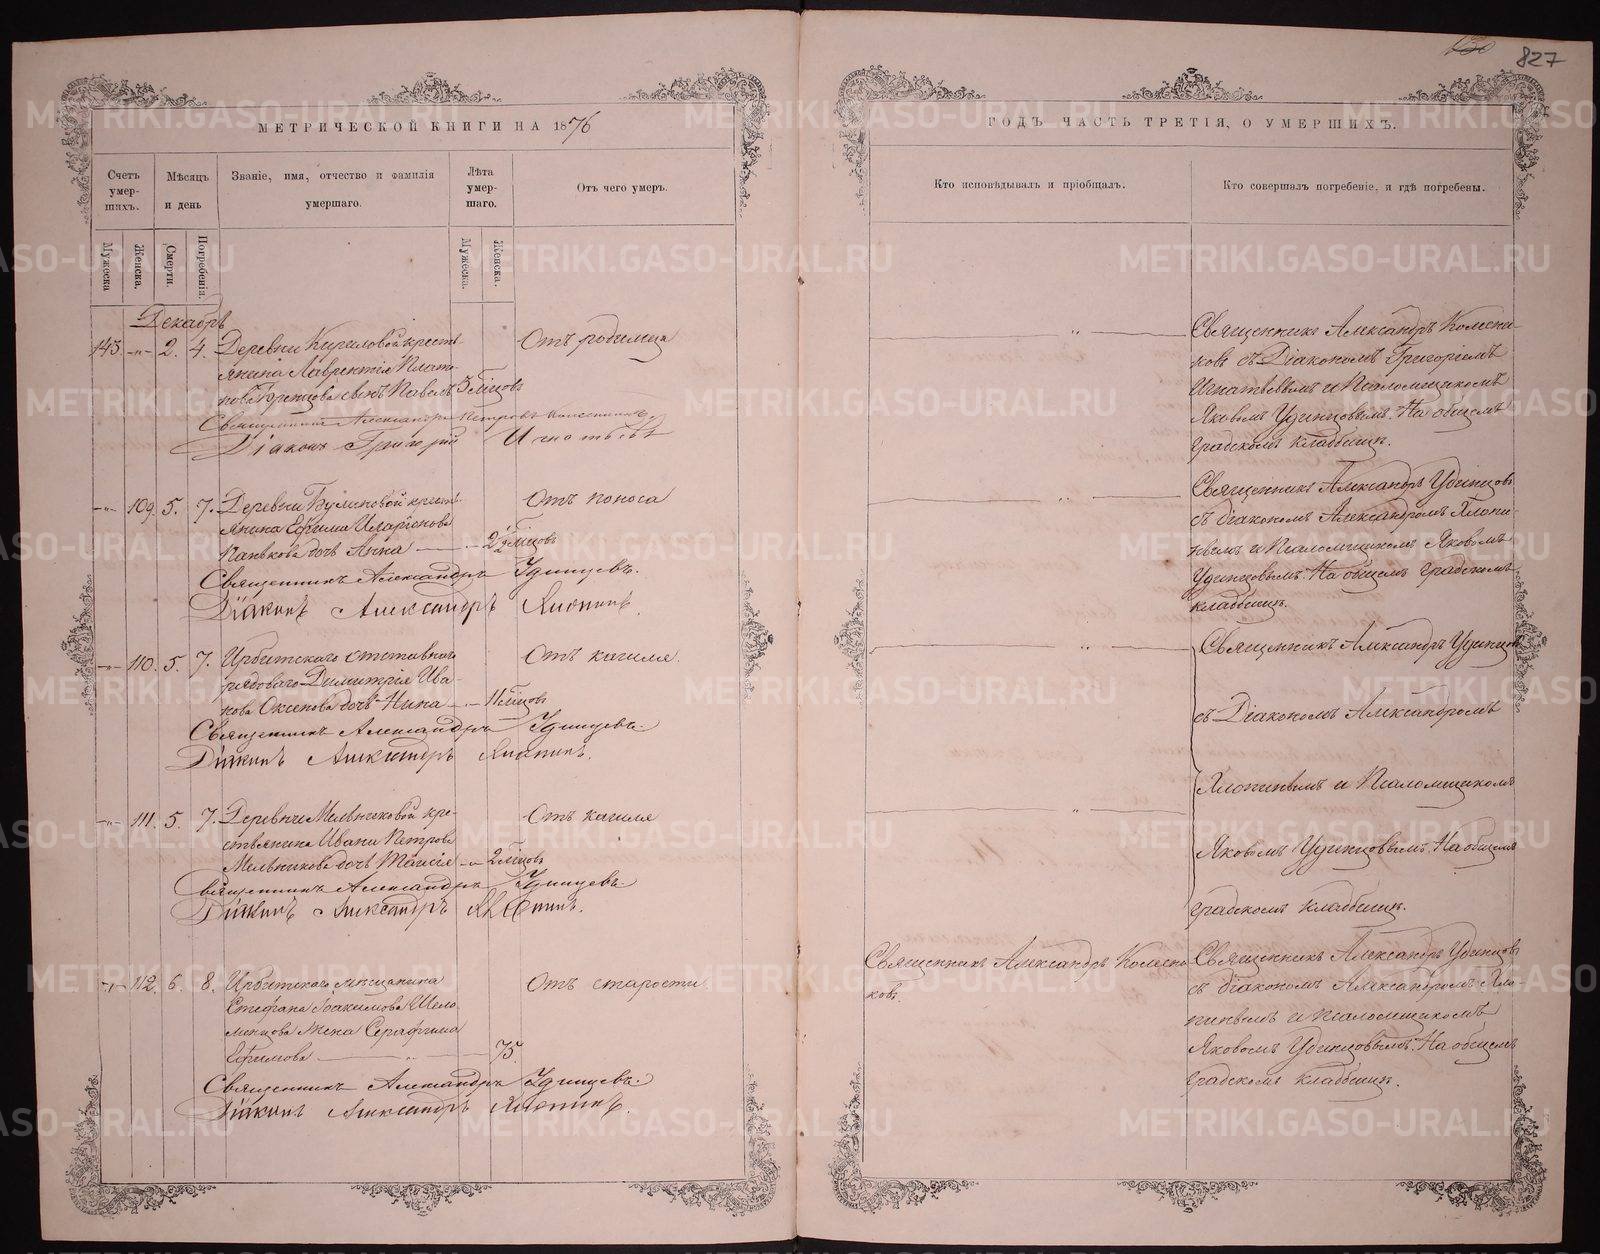 130 827
МЕТРИЧЕСКОЙ КНИГИ НА 1876
Счетъ умер-шихъ.
Мѣсяцъ и день
Званіе, имя, отчество и фамилія умершаго.
Лѣта умер-шаго.
Отъ чего умеръ.
Мужеска
Женска.
Смерти.
Погребенія.
Мужеска.
Женска.
Декабрь
143 -„- 2. 4. Деревни Кириловой кресть-
янина Лаврентія Плато-
нова сынъ Павелъ 3 мѣсцовъ
Отъ родимца
Священникъ Александръ Петровъ Колесниковъ.
Діаконъ Григорій Игнатьевъ
-„- 109. 5. 7. Деревни Буланковой кресть-
янина Ефима Иларіонова
Панькова дочь Анна 2½ мѣсцовъ
Отъ поноса
Священникъ Александръ Удинцевъ.
Діаконъ Александръ Хлопинъ.
-„- 110. 5. 7. Ирбитскаго отставнаго
рядоваго Димитрія Ива-
нова Оксенова дочь Нина 11 мѣсцовъ
Отъ кашля.
Священникъ Александръ Удинцевъ.
Діаконъ Александръ Хлопинъ.
-„- 111. 5. 7. Деревни Мельниковой кре-
стьянина Ивана Петрова
Мельникова дочь Таисія -„- 2 мѣсцовъ
Отъ кашля
Священникъ Александръ Удинцевъ.
Діаконъ Александръ Хлопинъ.
-„- 112. 6. 8. Ирбитскаго мѣщанина
Стефана Іоакимова Шело-
менцова жена Серафима
Ефимова -„- 75.
Отъ старости.
Священникъ Александръ Удинцевъ.
Діаконъ Александръ Хлопинъ.
ГОДЪ ЧАСТЬ ТРЕТІЯ, О УМЕРШИХЪ.
Кто исповѣдывалъ и пріобщалъ.
Кто совершалъ погребеніе, и гдѣ погребены.
-„-
Священникъ Александръ Колесни-
ковъ съ Діакономъ Григоріемъ
Игнатьевымъ и Псаломщикомъ
Яковомъ Удинцовымъ. На общемъ
градскомъ кладбищѣ.
-„-
Священникъ Александръ Удинцовъ
съ діакономъ Александромъ Хлопи-
нымъ и Псаломщикомъ Яковомъ
Удинцовымъ. На общемъ градскомъ
кладбищѣ.
-„-
Священникъ Александръ Удинцовъ
съ Діакономъ Александромъ
-„-
Хлопинымъ и Псаломщикомъ
Яковомъ Удинцовымъ. На общемъ
градскомъ кладбищѣ.
Священникъ Александръ Колесни-
ковъ.
Священникъ Александръ Удинцовъ
съ діакономъ Александромъ Хло-
пинымъ и Псаломщикомъ
Яковомъ Удинцовымъ. На общемъ
градскомъ кладбищѣ.
METRIKI.GASO-URAL.RU